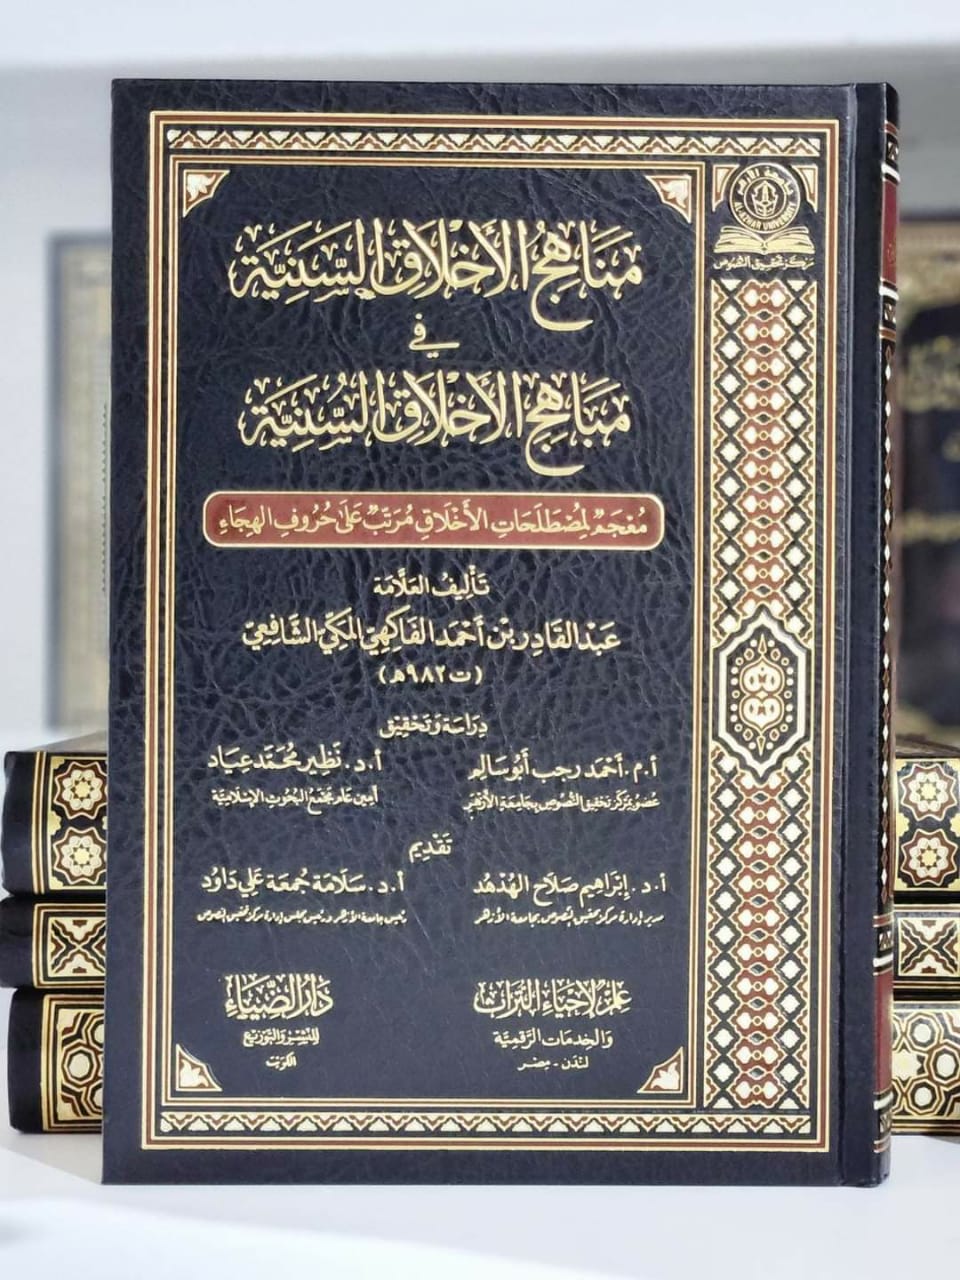 جامعة الأزهر
AL-AZHAR UNIVERSITY
مركز تحقيق النصوص
مَنَاهِجُ الأَخْلَاقِ السَّنِيَّة
في
مَبَاهِجِ الأَخْلَاقِ السُّنِيَّة
مُعْجَمٌ لِمُصْطَلَحَاتِ الأَخْلَاقِ مُرَتَّبٌ عَلَى حُرُوفِ الهِجَاءِ
تَأْلِيفُ العَلَّامَة
عَبْدِ القَادِرِ بْنِ أَحْمَدَ الفَاكِهِيِّ المَكِّيِّ الشَّافِعِيِّ
(ت ٩٨٢هـ)
دِرَاسَة وَتَحْقِيق
أ.م. أَحْمَد رجب أَبُو سَالِم
عُضْو بمَركَز تَحْقِيق النُّصُوصِ بِجَامِعَة الأَزْهَرِ
أ.د. نَظِير مُحَمَّد عيَاد
أَمِين عَام مَجْمَع البُحُوث الإِسْلَامِيَّة
تَقْدِيم
أ.د. إِبْرَاهِيم صَلَاح الهُدْهُد
مدير إدارة مركز تحقيق النصوص بجامعة الأزهر
أ.د. سَلَامَة جُمعَة عَلِي دَاوُد
رئيس جامعة الأزهر ورئيس مجلس إدارة مركز تحقيق النصوص
عِلْمٌ لِإحْيَاءِ التُّرَاثِ
وَالخِدمَات الرَّقَمِيَّة
لندن - مصر
دَارُ الضِّيَاءِ
لِلنَّشْرِ وَالتَّوْزِيْع
الكويت